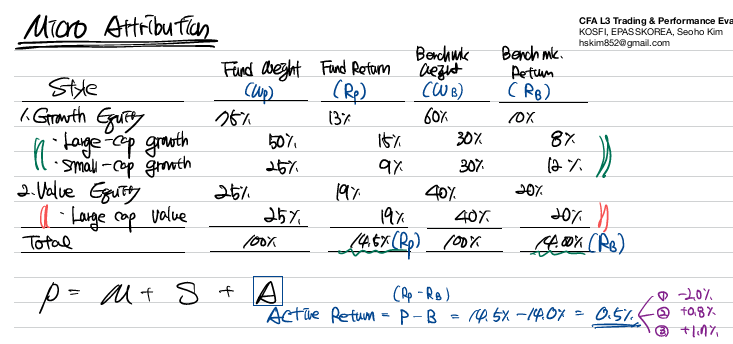 Micro Attribution
CFA L3 Trading & Performance Eva
KOSFI, EPASSKOREA, Seoho Kim
hskim852@gmail.com
Style Fund Weight (Wp) Fund Return (Rp) Benchmk Weight (WB) Benchmk. Return (RB)
1. Growth Equity 75% 13% 60% 10%
· Large-cap growth 50% 15% 30% 8%
· Small-cap growth 25% 9% 30% 12%
2. Value Equity 25% 19% 40% 20%
· Large cap value 25% 19% 40% 20%
Total 100% 14.5% (Rp) 100% 14.00% (RB)
P = M + S + A
(Rp-RB)
Active Return = P-B = 14.5% - 14.0% = 0.5%
① -2.0%
② +0.8%
③ +1.7%